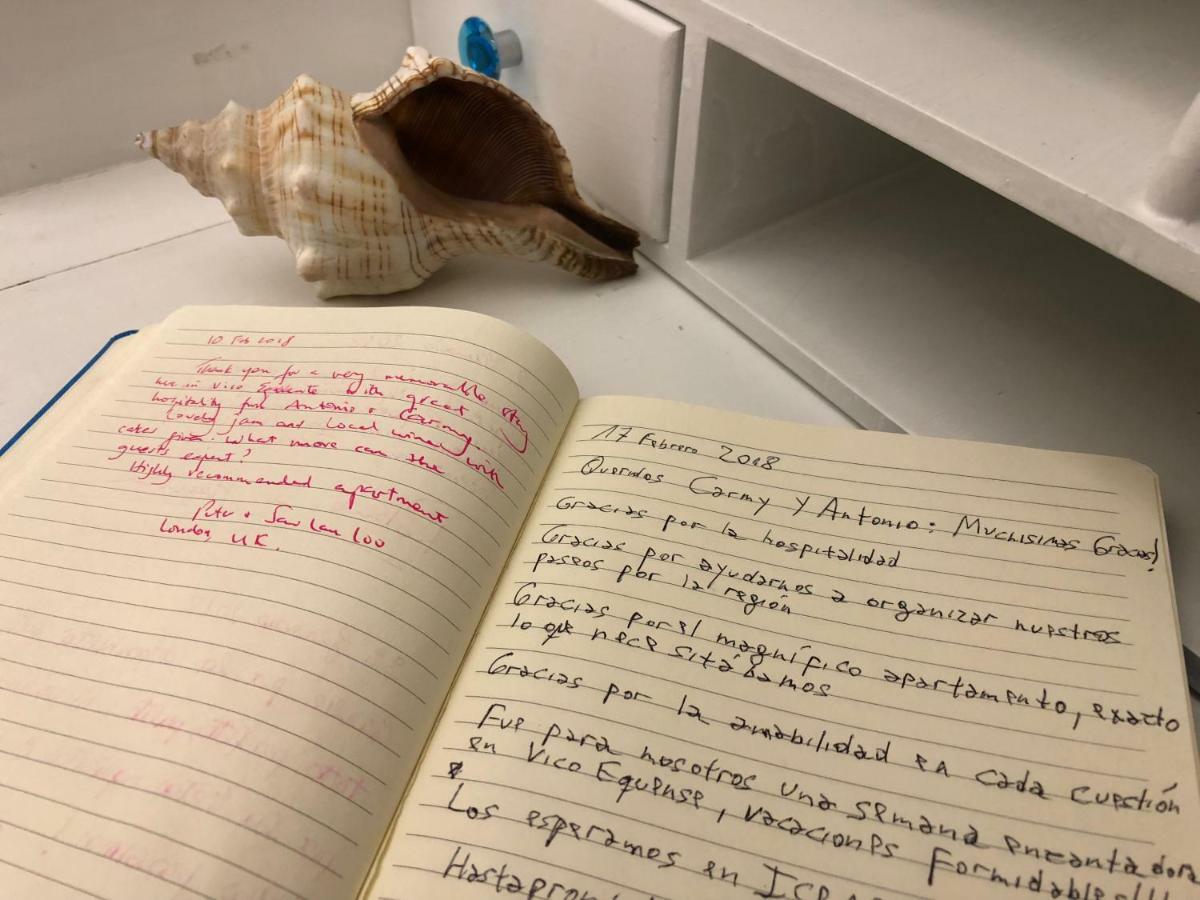 10 Feb 2018
Thank you for a very memorable stay
here in Vico Equense with great
hospitality from Antonio & Carmy.
Lovely jam and local wine with
cakes given. What more can the
guests expect?
Highly recommended apartment
Peter & San Lan Loo
London, UK.
17 Febrero 2018
Queridos Carmy y Antonio: Muchisimas Gracias!
Gracias por la hospitalidad
Gracias por ayudarnos a organizar nuestros
paseos por la región
Gracias por el magnífico apartamento, exacto
lo que necesitábamos
Gracias por la amabilidad en cada cuestión
Fue para nosotros una semana encantadora
en Vico Equense, vacaciones formidables!!!
Los esperamos en
Hasta